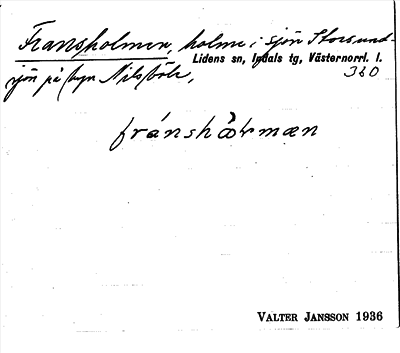 Fransholmen, holme i sjön Storsund-
Lidens sn, Indals tg, Västernorrl. l.
sjön på byn Nilsböle,
360
fránshòlmæn
VALTER JANSSON 1936